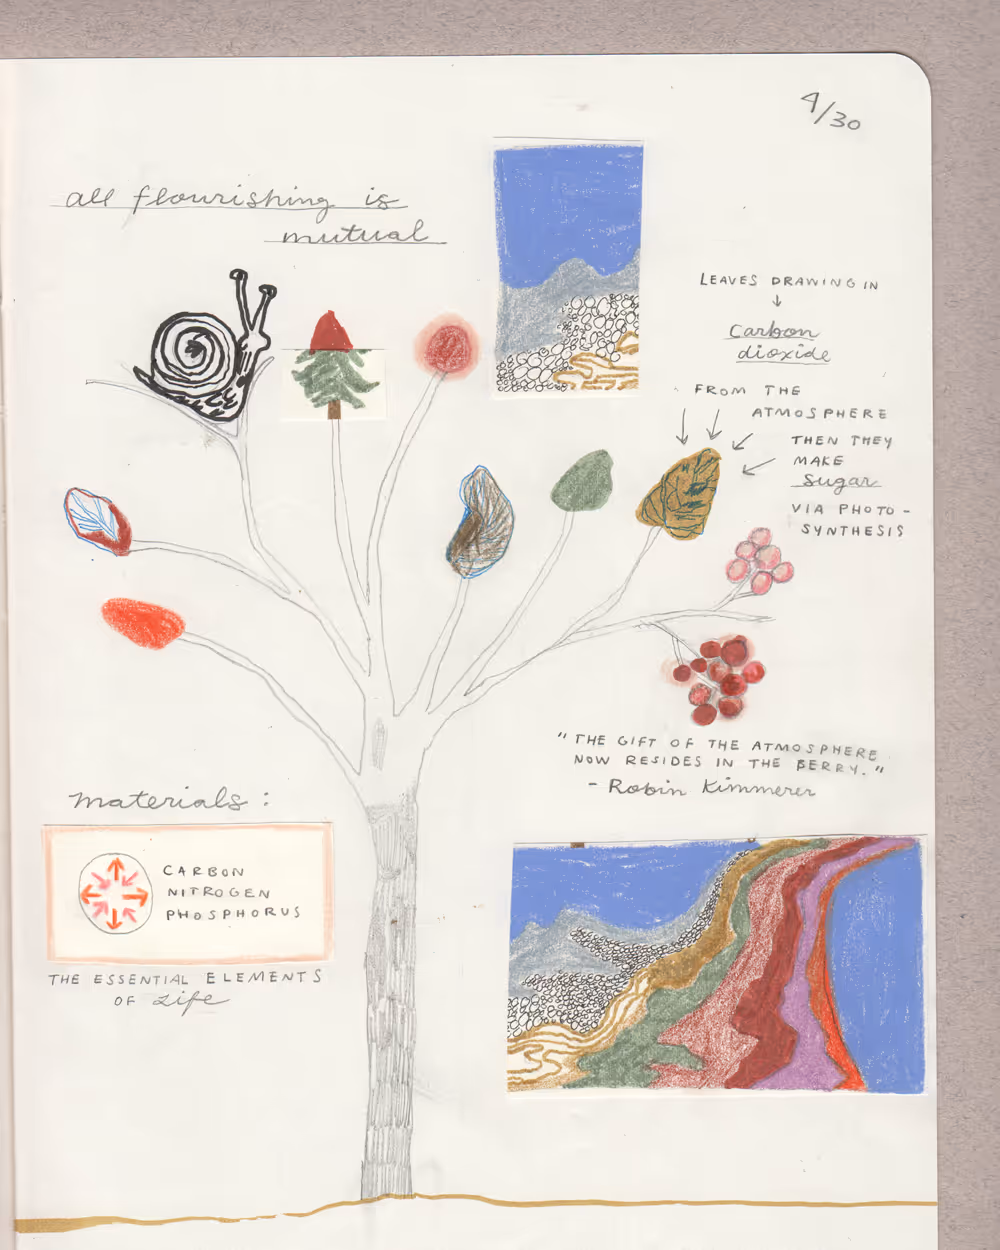 4/30
all flourishing is
mutual
LEAVES DRAWING IN
Carbon
dioxide
FROM THE
ATMOSPHERE
THEN THEY
MAKE
sugar
VIA PHOTO-
SYNTHESIS
"THE GIFT OF THE ATMOSPHERE
NOW RESIDES IN THE BERRY."
- Robin Kimmerer
materials:
CARBON
NITROGEN
PHOSPHORUS
THE ESSENTIAL ELEMENTS
OF Life